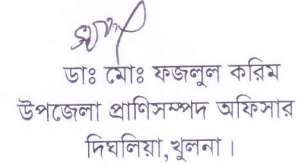 ডাঃ মোঃ ফজলুল করিম
উপজেলা প্রাণিসম্পদ অফিসার
দিঘলিয়া,খুলনা।